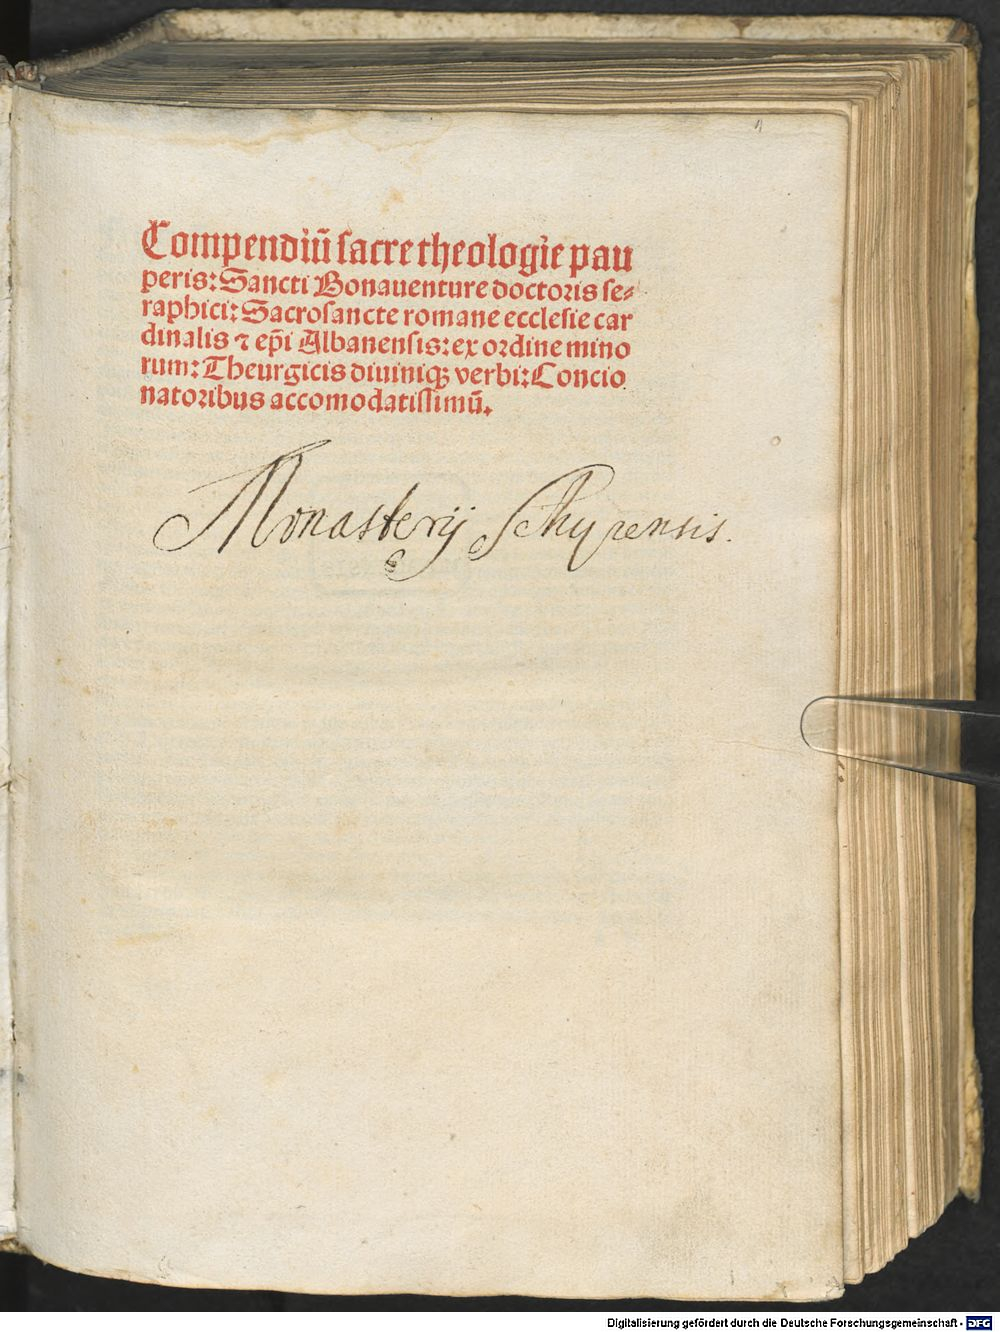 Compendiū sacre theologie pau
peris: Sancti Bonauenture doctoris se⸗
raphici: Sacrosancte romane ecclesie car
dinalis ⁊ ep̄i Albanensis: ex ordine mino
rum: Theurgicis diuiniqꝫ verbi: Concio
natoribus accomodatissimū.
Monasterij Schyrensis.
Digitalisierung gefördert durch die Deutsche Forschungsgemeinschaft - DFG